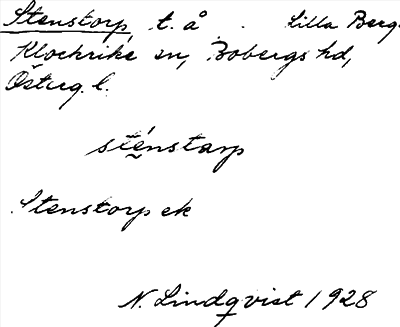 Stenstorp, t. å. Lilla Berg.
Klockrike sn, Bobergs hd,
Österg. l.
sténstarp
Stenstorp ek
N. Lindqvist 1928